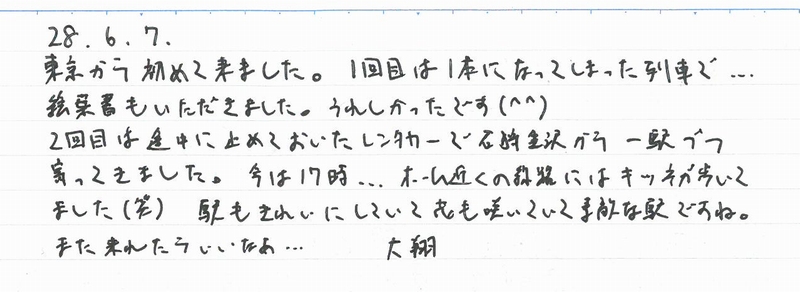 28.6.7.
東京から初めて来ました。1回目は1本になってしまった列車で…
絵葉書もいただきました。うれしかったです(^^)
2回目は途中に止めておいたレンタカーで石狩金沢から一駅づつ
寄ってきました。今は17時…ホーム近くの線路にはキツネが歩いて
ました(笑) 駅もきれいにしていて花も咲いていて素敵な駅ですね。
また来れたらいいなあ… 大翔